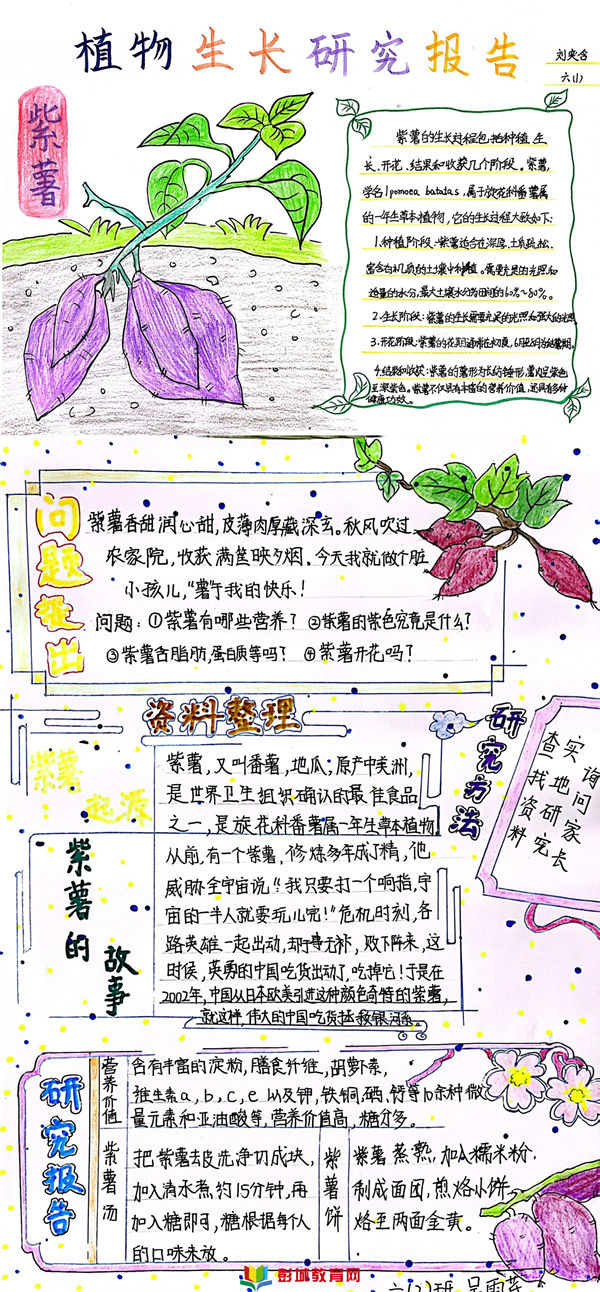 植物生长研究报告
六(1)
紫薯
紫薯的生长过程包括种植、生
长、开花、结果和收获几个阶段。紫薯,
学名Ipomoea batatas,属于旋花科番薯属
的一年生草本植物,它的生长过程大致如下:
1.种植阶段:紫薯适合在深厚、土质疏松、
富含有机质的土壤中种植。需要充足的光照和
适量的水分,最大土壤水分为田间的60%~80%。
2.生长阶段:紫薯的生长需要充足的光照和强大的光照
3.开花阶段:紫薯的花期通常在
4.结果和收获:紫薯的薯形为长纺锤形,薯肉呈紫色
至深紫色。紫薯不仅具有丰富的营养价值,还具有多种
健康功效。
问题提出
紫薯香甜润心甜,皮薄肉厚藏深玄。秋风吹过
农家院,收获满筐映夕烟。今天我就做个脏
小孩儿,“薯”于我的快乐!
问题:①紫薯有哪些营养?②紫薯的紫色究竟是什么?
③紫薯含脂肪、蛋白质等吗?④紫薯开花吗?
资料整理
紫薯起源
紫薯,又叫番薯,地瓜,原产中美洲,
是世界卫生组织确认的最佳食品
之一,是旋花科番薯属一年生草本植物。
紫薯的故事
从前,有一个紫薯,修炼多年成了精,他
威胁全宇宙说:“我只要打一个响指,宇
宙的一半人就要玩儿完!”危机时刻,各
路英雄一起出动,却于事无补,败下阵来,这
时侯,英勇的中国吃货出动了,吃掉它!于是在
2002年,中国从日本欧美引进这种颜色奇特的紫薯,
就这样,伟大的中国吃货拯救银河系。
研究方法
查找资料
实地研究
询问家长
研究报告
营养价值
含有丰富的淀粉,膳食纤维,胡萝卜素,
维生素a,b,c,e以及钾,铁铜,硒,钙等10余种微
量元素和亚油酸等,营养价值高,糖分多。
紫薯汤
把紫薯去皮洗净切成块,
加入清水煮,约15分钟,再
加入糖即可,糖根据每个人
的口味来放。
紫薯饼
紫薯蒸熟,加入糯米粉,
制成面团,煎烙小饼
烙至两面金黄。
彭城教育网
六(2)班